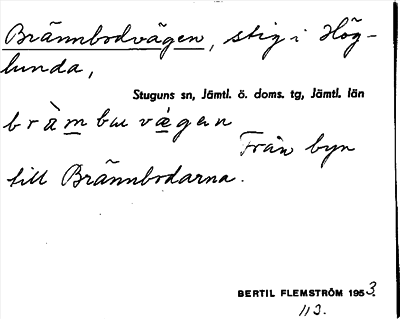 Brännbodvägen, stig i Hög-
lunda,
Stuguns sn, Jämtl. ö. doms. tg, Jämtl. län
bràmbu vägen
Från byn
till Brännbodarna.
BERTIL FLEMSTRÖM 1953.
113.